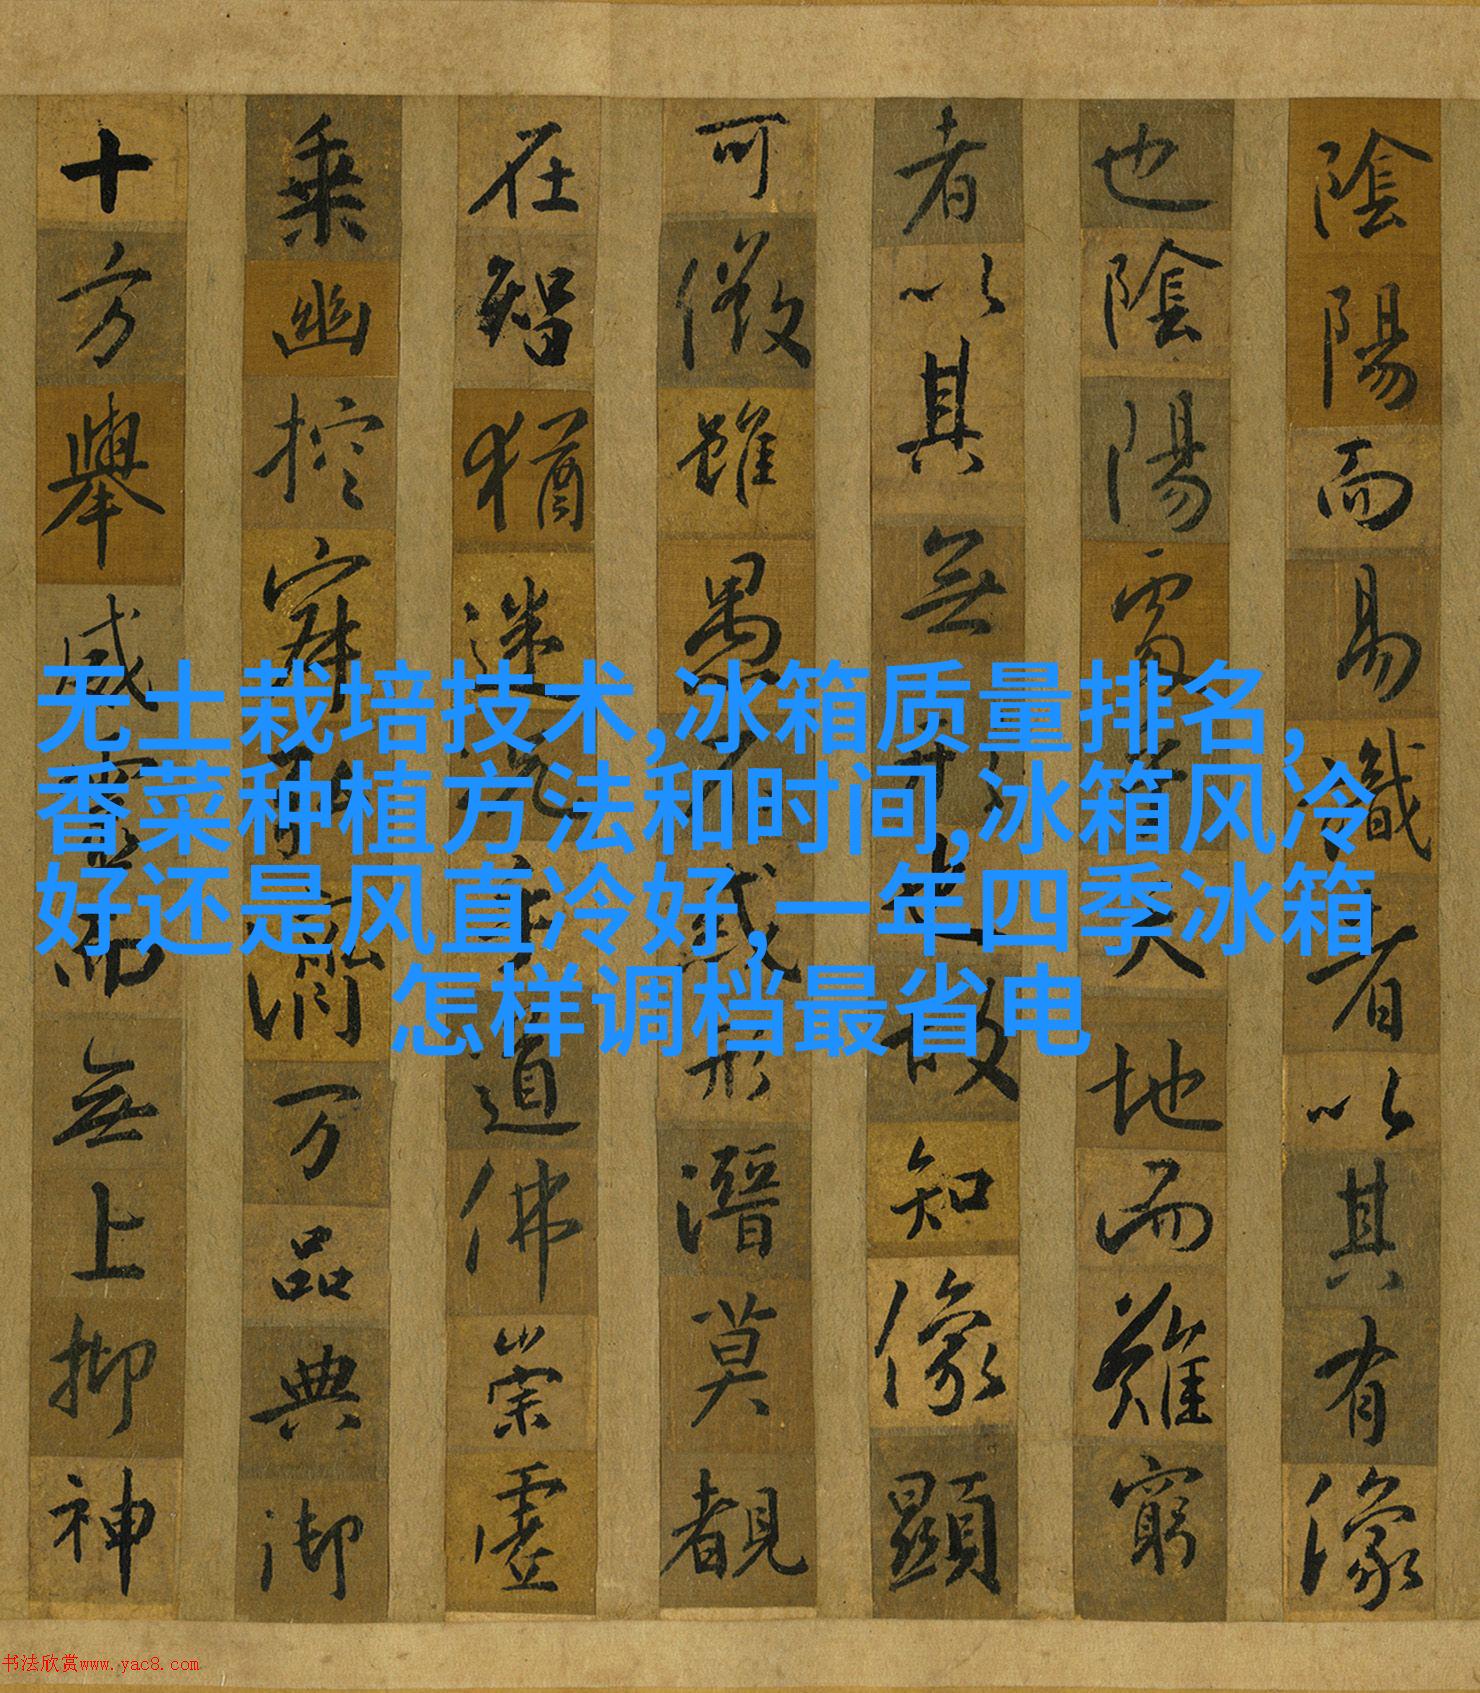 陰陽而易識者以其有像
也陰陽處乎天地而難窮
者以其無形也故知像顯
可徵雖愚不惑形潛莫覩
在智猶迷況乎道佛崇虛
乗幽控寂弘濟万品典御
十方舉威靈而無上抑神
无土栽培技术,冰箱质量排名,
香菜种植方法和时间,冰箱风冷
好还是风直冷好,一年四季冰箱
怎样调档最省电
书法欣赏www.yac8.com